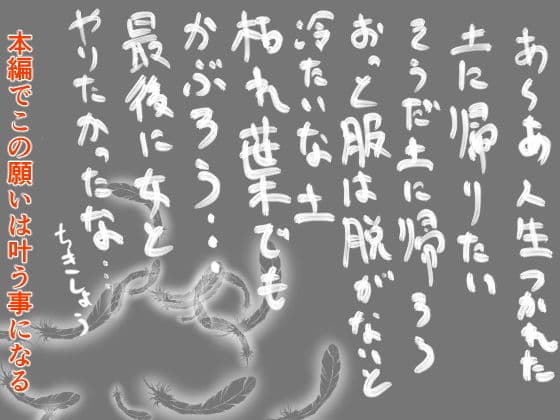 あ~あ人生つかれた
土に帰りたい
そうだ土に帰ろう
おっと服は脱がないと
冷たいな土
枯れ葉でも
かぶろう・・・
最後に女と
やりたかったな…
ちきしょう
本編でこの願いは叶う事になる